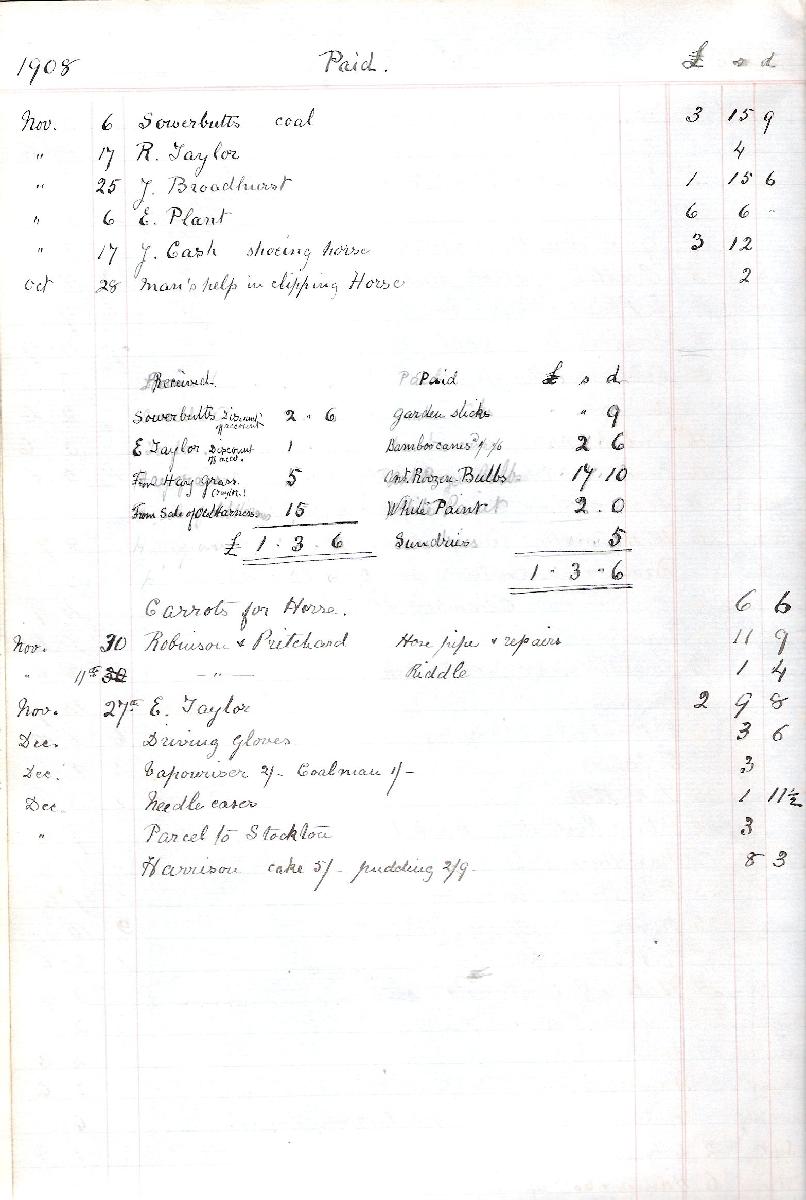 1908 Paid. £ s d
Nov. 6 Sowerbutts coal 3 15 9
" 17 R. Taylor 4
" 25 J. Broadhurst 1 15 6
" 6 E. Plant 6 6 "
" 17 J. Cash shoeing horse 3 12
Oct 28 Man's help in clipping Horse 2
Received. Paid £ s d
Sowerbutts Discount off account 2 . 6 Garden sticks " 9
E Taylor Discount off acct. 1 . Bamboo canes 2 6
From Hay grass. 5 Ant. Roozen Bulbs 17 10
From Sale of Old Harness. 15 White Paint 2 . 0
£ 1 . 3 . 6 Sundries 5
1 . 3 . 6
Carrots for Horse. 6 6
Nov. 30 Robinson & Pritchard Hose pipe & repairs 11 9
" 11th 30 — " — Riddle 1 4
Nov. 27th E. Taylor 2 9 8
Dec. Driving Gloves 3 6
Dec. Vapouriser 2/- Coalman 1/- 3
Dec. Needle cases 1 11½
" Parcel to Stockton 3
Harrison cake 5/- pudding 2/9 - 8 3